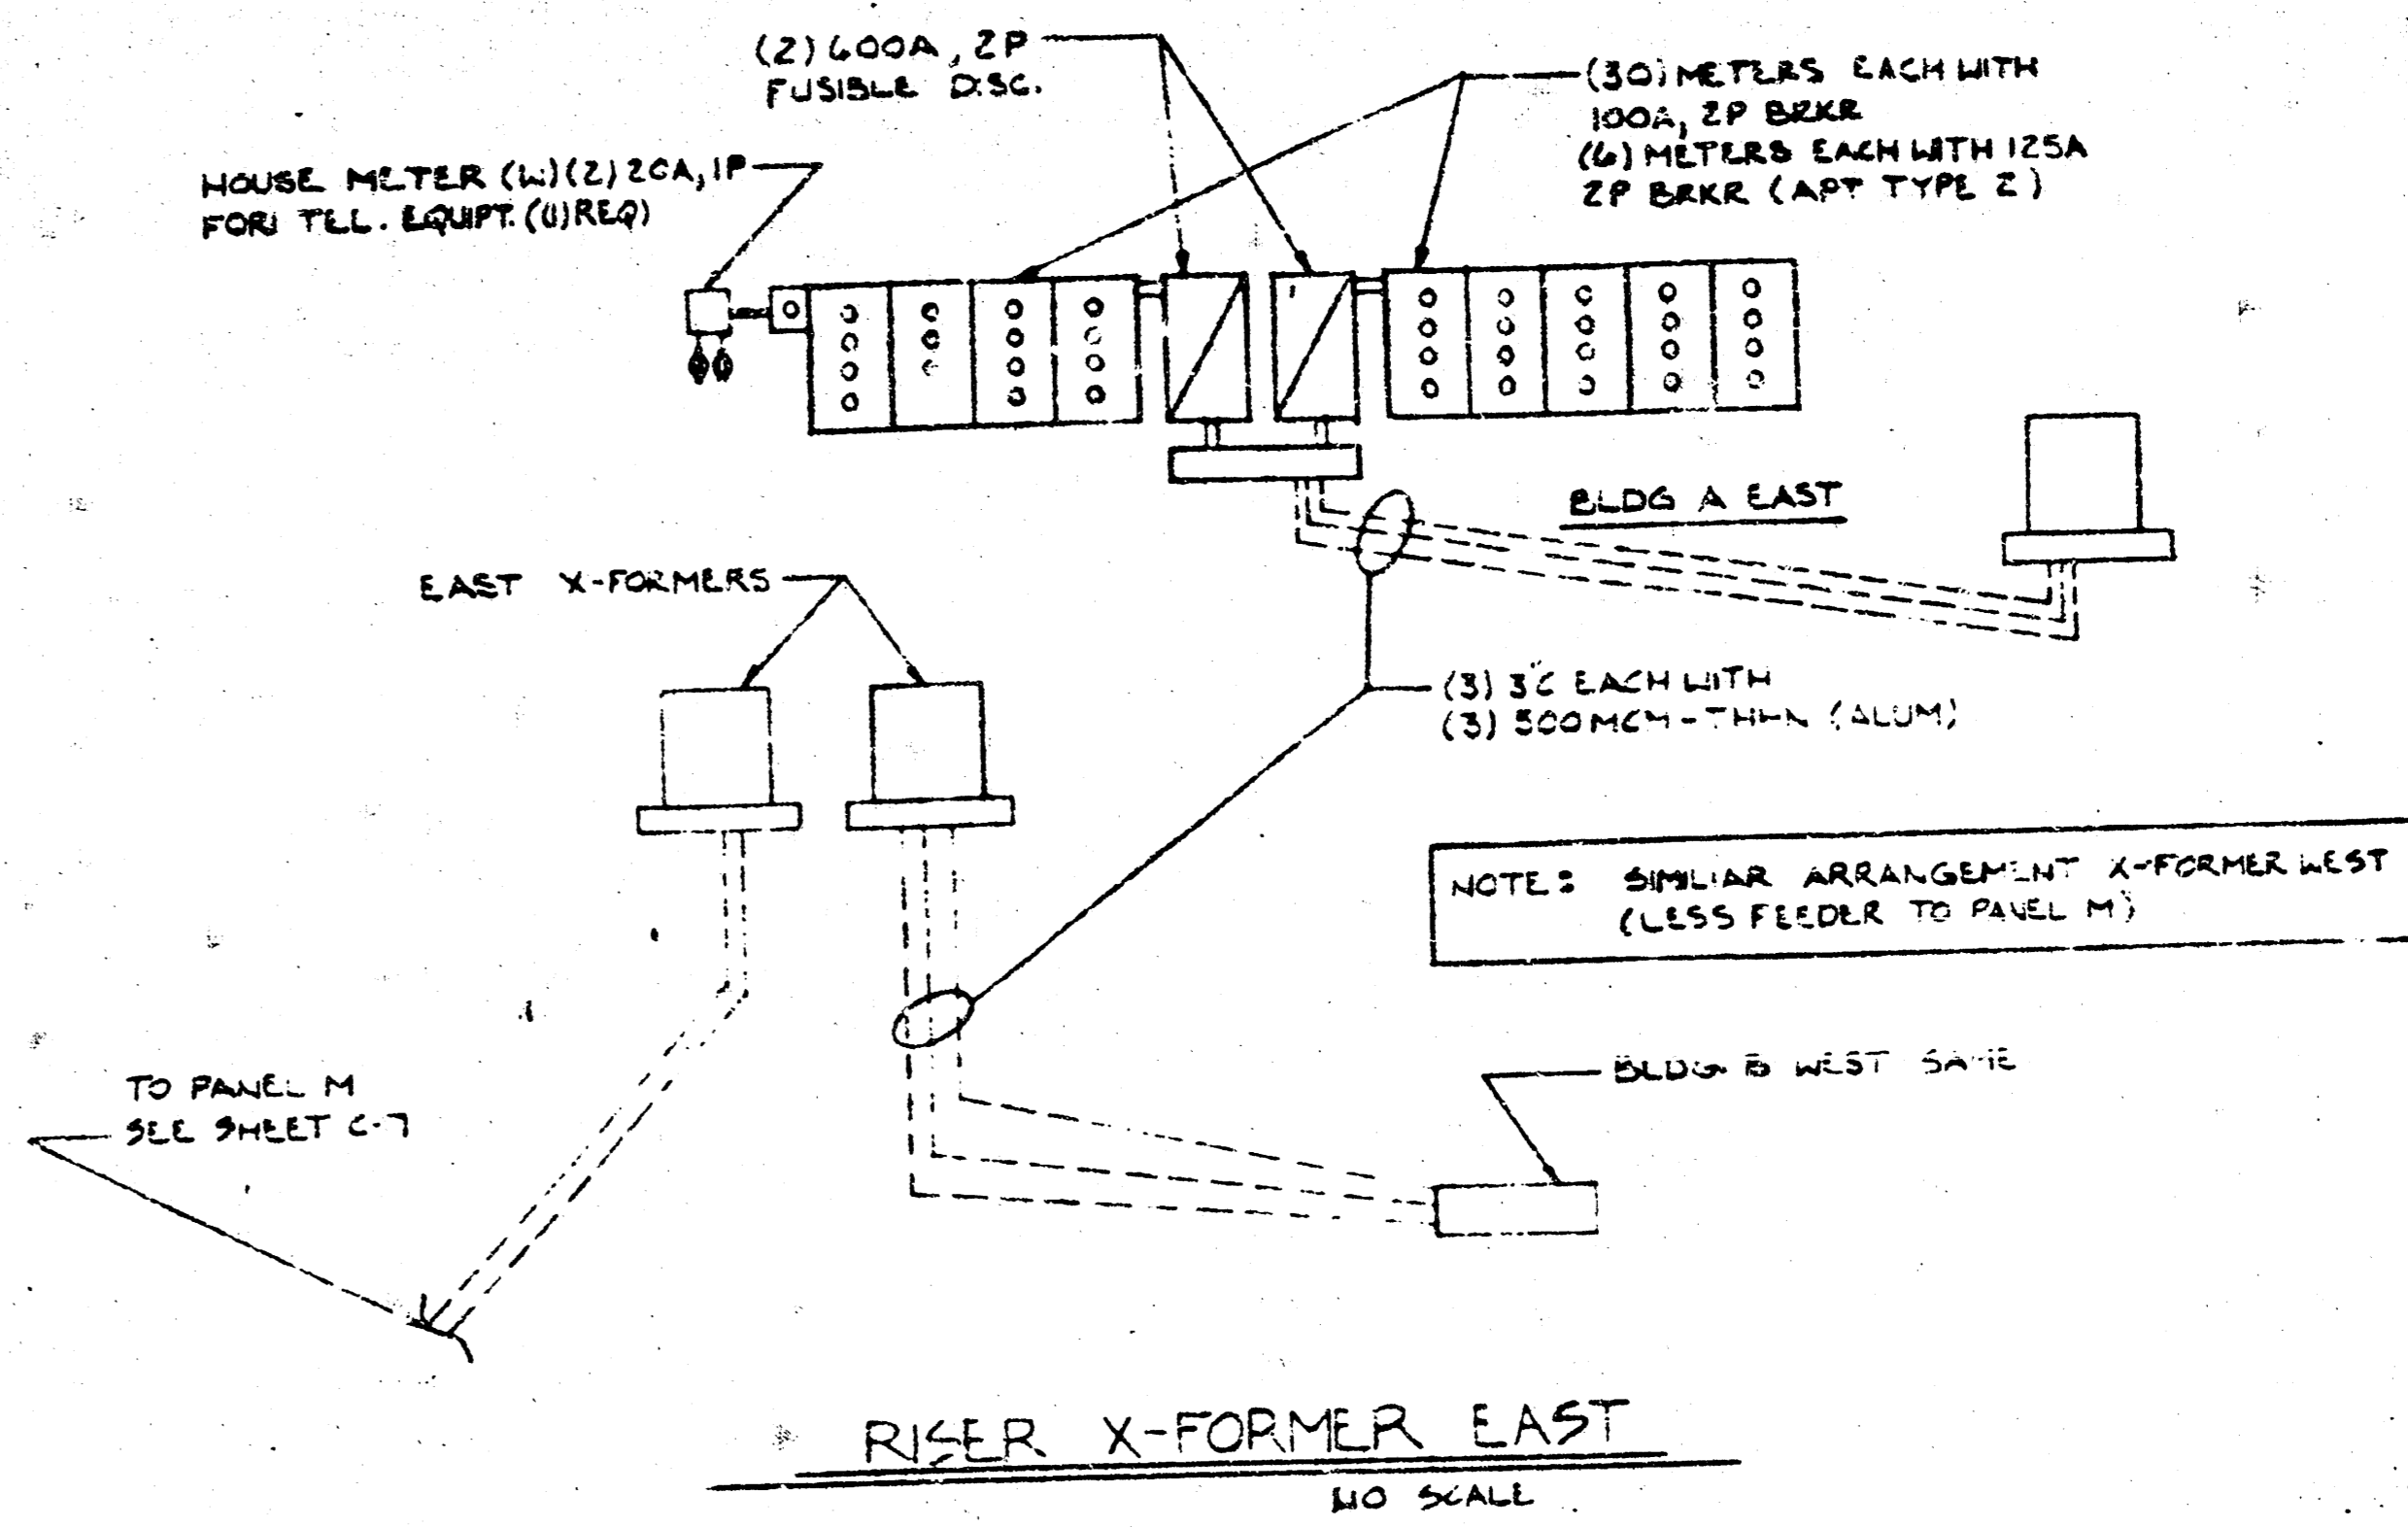 (2) 600A, 2P
FUSIBLE DISC.
(30) METERS EACH WITH
100A, 2P BRKR
(6) METERS EACH WITH 125A
2P BRKR (APT TYPE 2)
HOUSE METER (W)(2) 20A, 1P
FOR TEL. EQUIPT. (1) REQ)
BLDG A EAST
EAST X-FORMERS
(3) 3"C EACH WITH
(3) 500MCM - (ALUM)
NOTE: SIMILIAR ARRANGEMENT X-FORMER WEST
(LESS FEEDER TO PANEL M)
BLDG B WEST SAME
TO PANEL M
SEE SHEET C-7
RISER X-FORMER EAST
NO SCALE